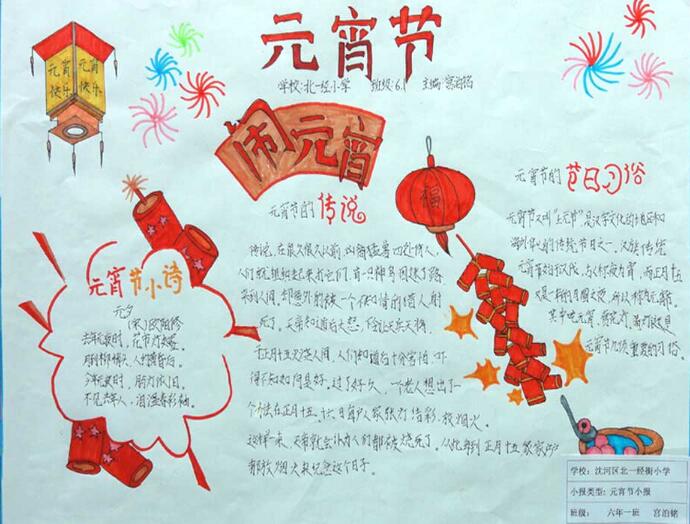 元宵节
学校:北一经小学 班级:6.1 主编:宫泊铭
元宵
快乐
元宵
快乐
闹元宵
元宵节的传说
传说,在很久很久以前,凶禽猛兽四处伤人,
人们就组织起来打它们,有一只神鸟因迷了路
来到人间,却意外的被一个不知情的猎人射
死了。天帝知道后大怒,
正月十五火烧人间,人们知道后十分害怕,吓
得不知如何是好,过了好久,一个老人想出了一
个办法在正月十五、十六日每户人家张灯结彩,放烟火。
这样一来,天帝就会以为人们都被烧死了。从此每到正月十五家家户户
都放烟火来纪念这个日子。
福
元宵节的节日习俗
元宵节又叫“上元节”是汉字文化的地区和
的传统节日之一,汉族传统
元宵节始于汉代,
又是一年的月圆之夜,所以称为元宵节。
其中吃元宵、赏花灯、
元宵节几项重要的习俗。
元宵节小诗
元夕
(宋)欧阳修
去年元夜时,花市灯如昼。
月到柳梢头,人约黄昏后。
今年元夜时,月与灯依旧。
不见去年人,泪湿春衫袖。
学校:沈河区北一经街小学
小报类型:元宵节小报
班级: 六年一班 宫泊铭